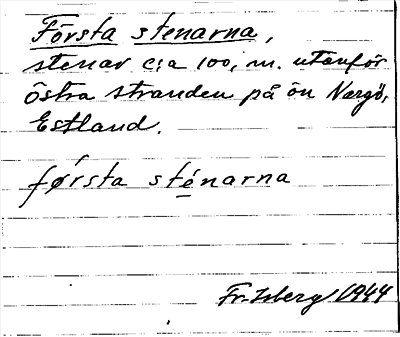 Första stenarna,
stenar c:a 100, m. utanför
östra stranden på ön Nargö,
Estland.
førsta sténarna
Fr. Isberg 1944